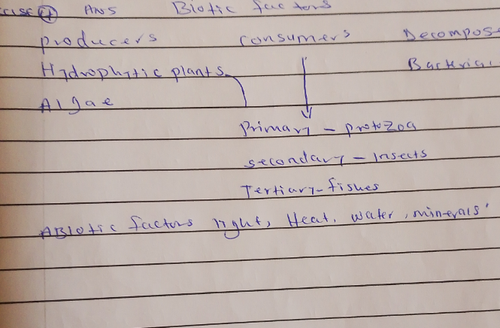 ④ Ans Biotic factors
producers consumers Decompos
Hydrophytic plants Bacteria
Algae
Primary - protozoa
secondary - Insects
Tertiary - fishes
ABiotic factors light, Heat, water, minerals